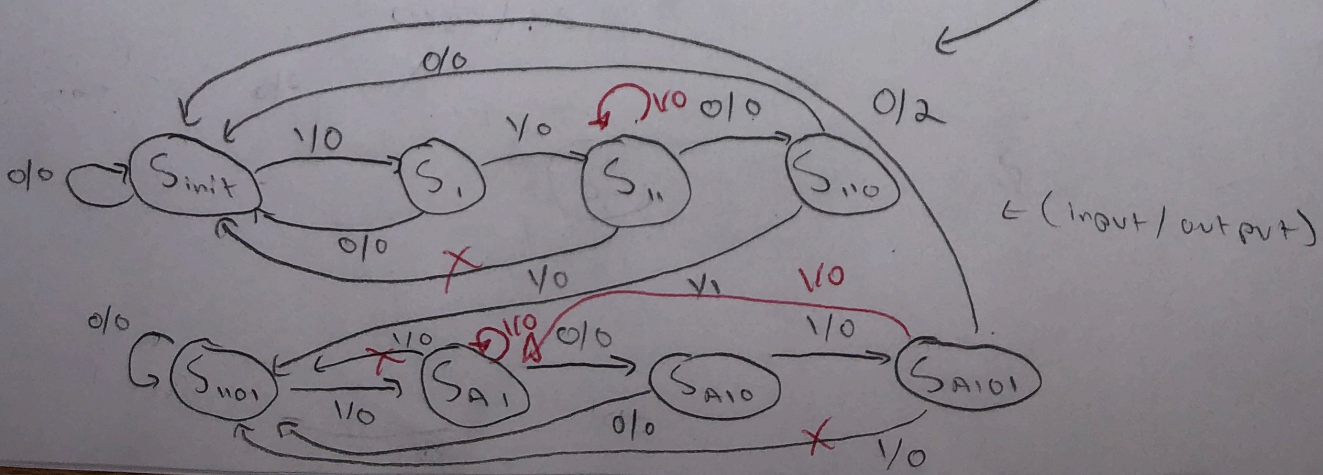 0/0
0/2
1/0
1/0
1/0
0/0
0/0
Sinit
S1
S11
S110
← (input/output)
0/0
X
1/0
1/1
1/0
0/0
1/0
1/0
0/0
1/0
X
S1101
SA1
SA10
SA101
1/0
0/0
X
1/0